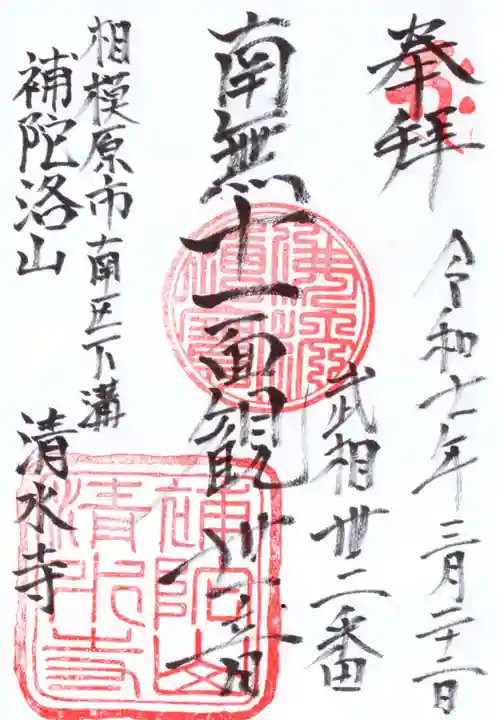 奉拝
令和七年三月二十二日
武相丗二番
南無十一面観世音
佛法僧寶
相模原市南区下溝
補陀洛山
清水寺
補陀山
清水寺